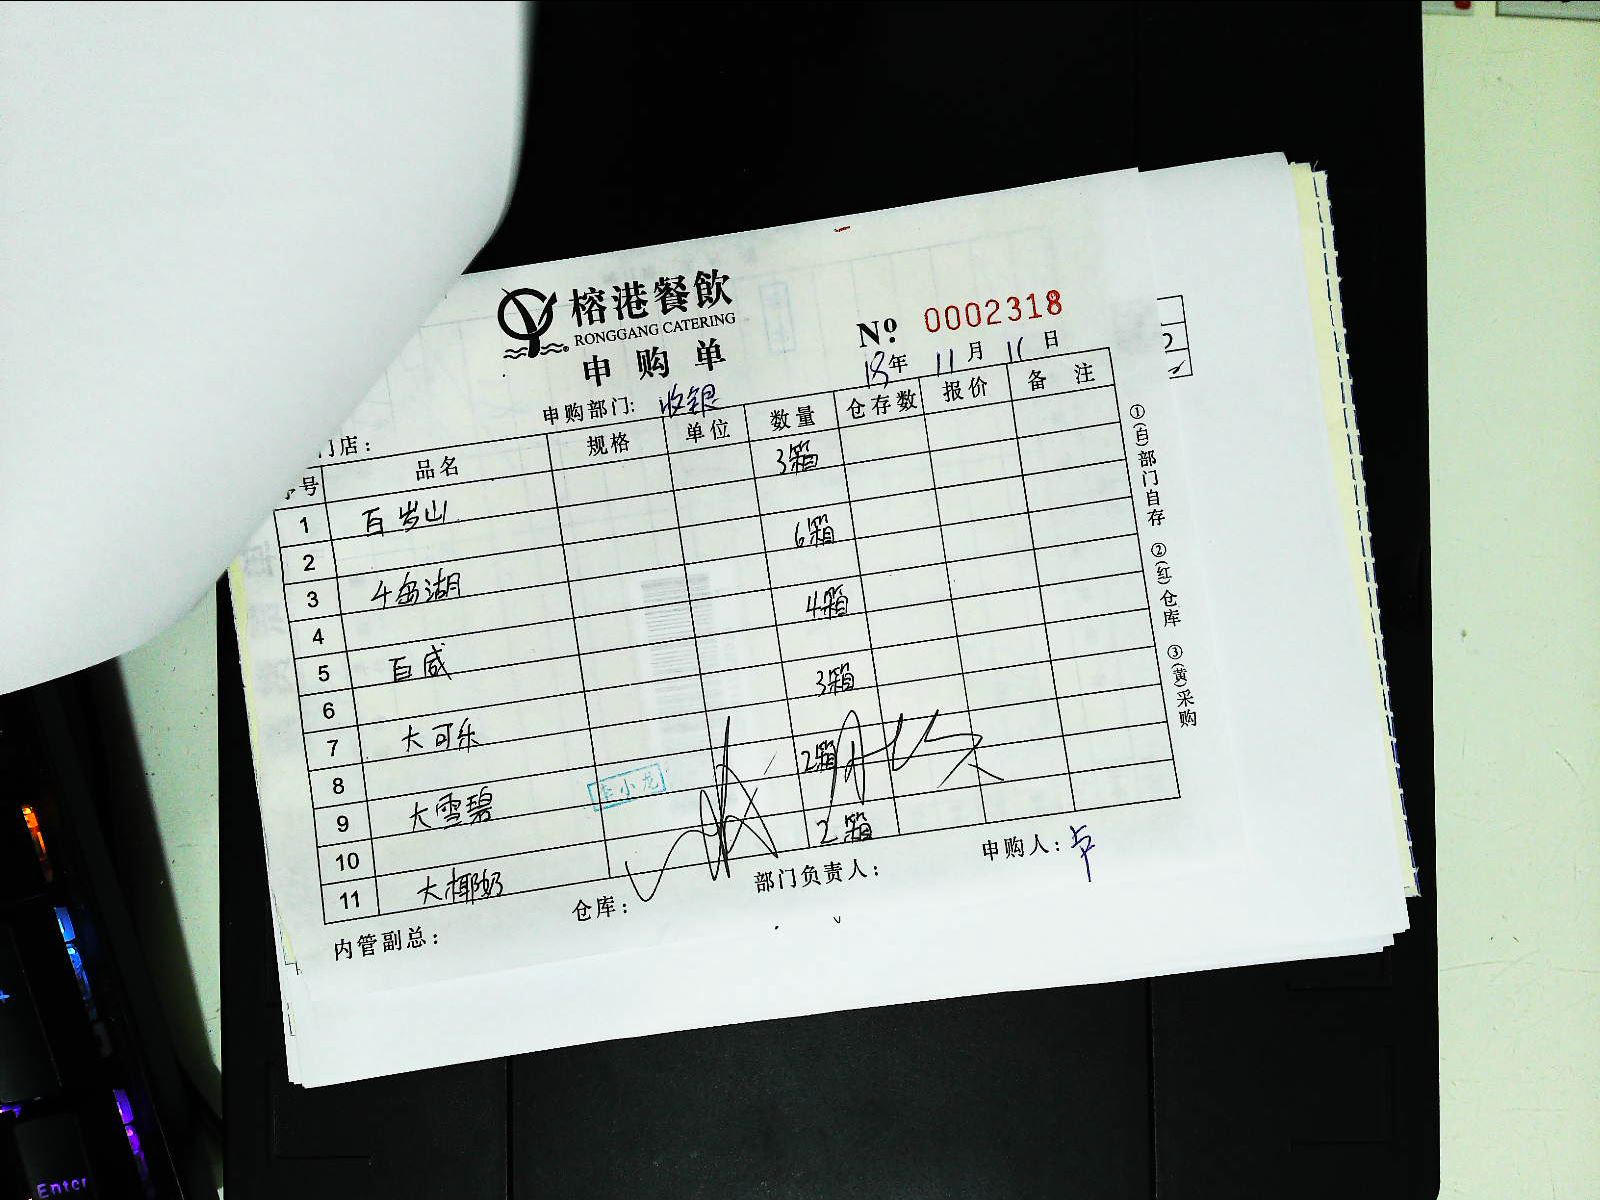 榕港餐飲
RONGGANG CATERING
申购单
№ 0002318
18年 11月 11日
门店： 申购部门: 收银
号 品名 规格 单位 数量 仓存数 报价 备注
1 百岁山 3箱
2
3 千岛湖 6箱
4
5 百威 4箱
6
7 大可乐 3箱
8
9 大雪碧 2箱
10
11 大椰奶 2箱
内管副总： 仓库： 部门负责人： 申购人：
①(白)部门自存 ②(红)仓库 ③(黄)采购
小龙
Enter